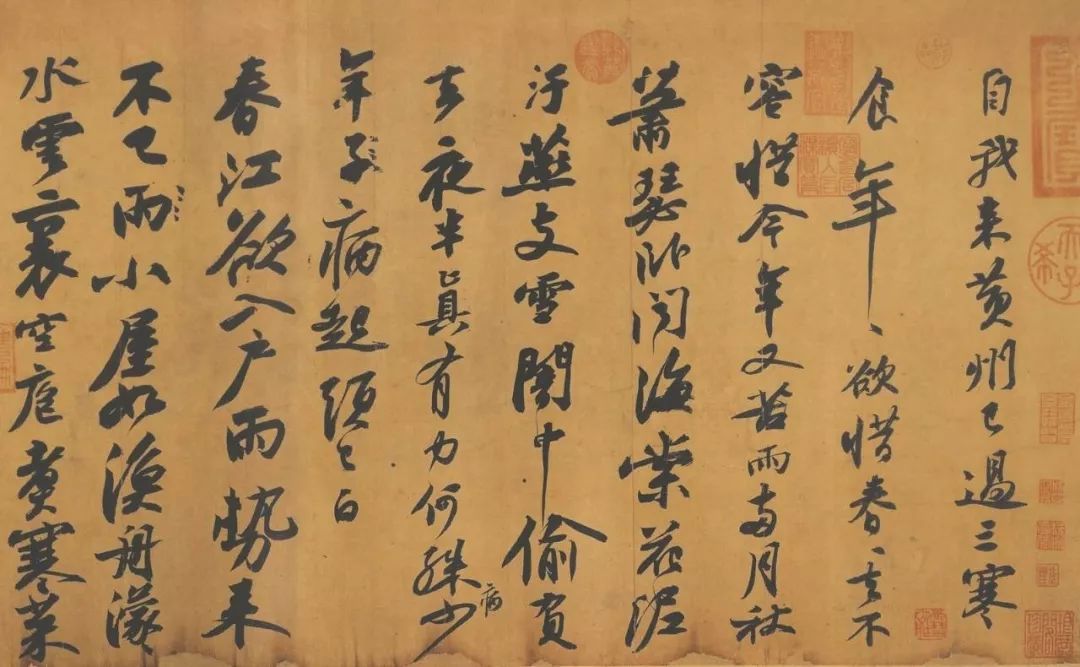 自我来黄州已過三寒
食年〻欲惜春〻去不
容惜今年又苦雨兩月秋
蕭瑟卧聞海棠花泥
汙燕支雪闇中偷負
去夜半真有力何殊病少
年子病起頭已白
春江欲入户雨勢来
不已雨小屋如漁舟濛〻
水雲裏空庖煮寒菜